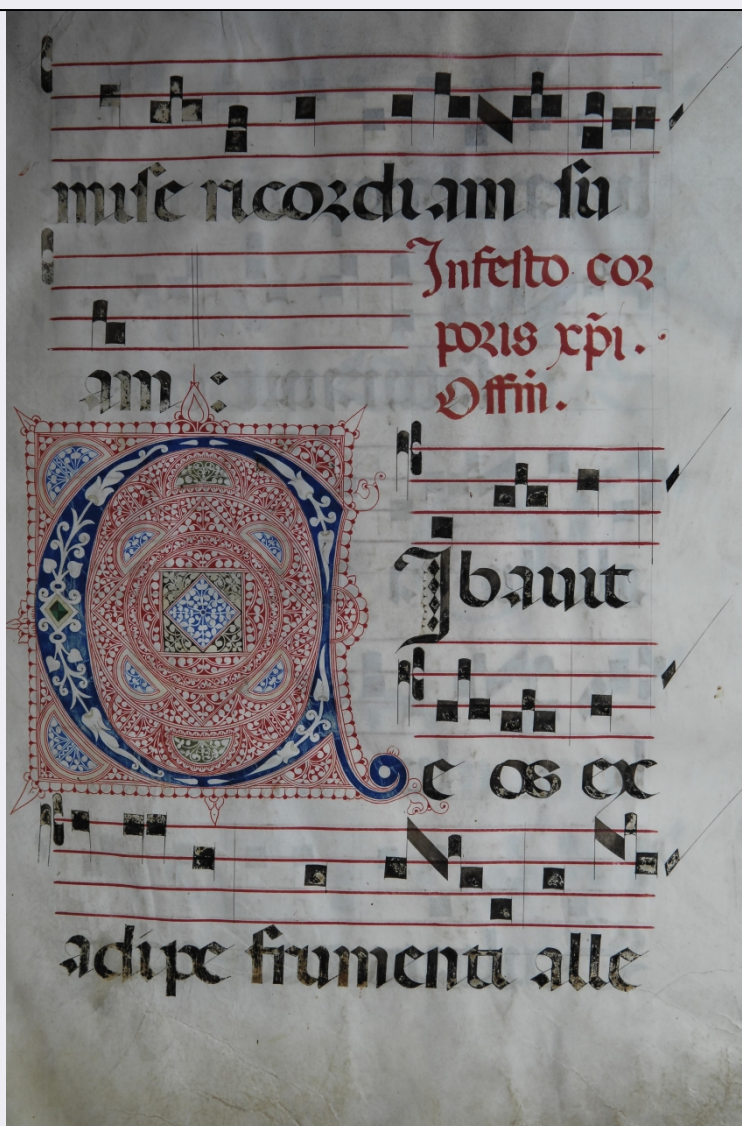 mise ricordi am su
am :
In festo cor
poris xp̃i.
Offiñ.
CIbauit
e os ex
adipe frumenti alle